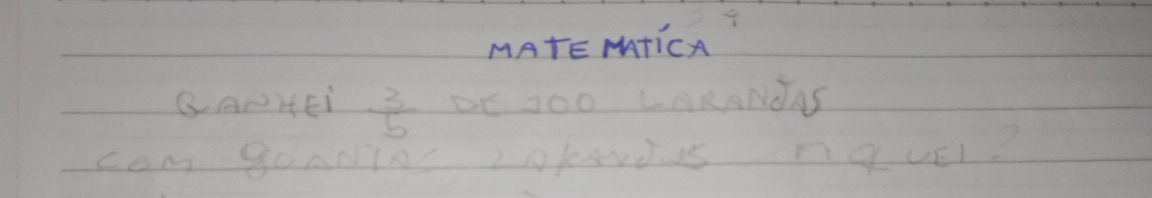 MATEMATÍCA
GANHEI 3/5 DE 100 LARANJAS
COM QUANTAS LARANJAS FIQUEI?